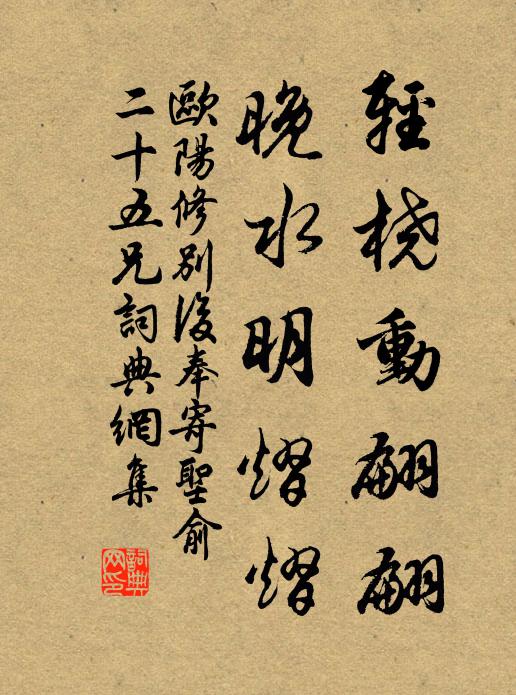 輕桡動翩翩
晚水明熠熠
歐陽修別後奉寄聖俞
二十五兄詞典網集
詞典网印